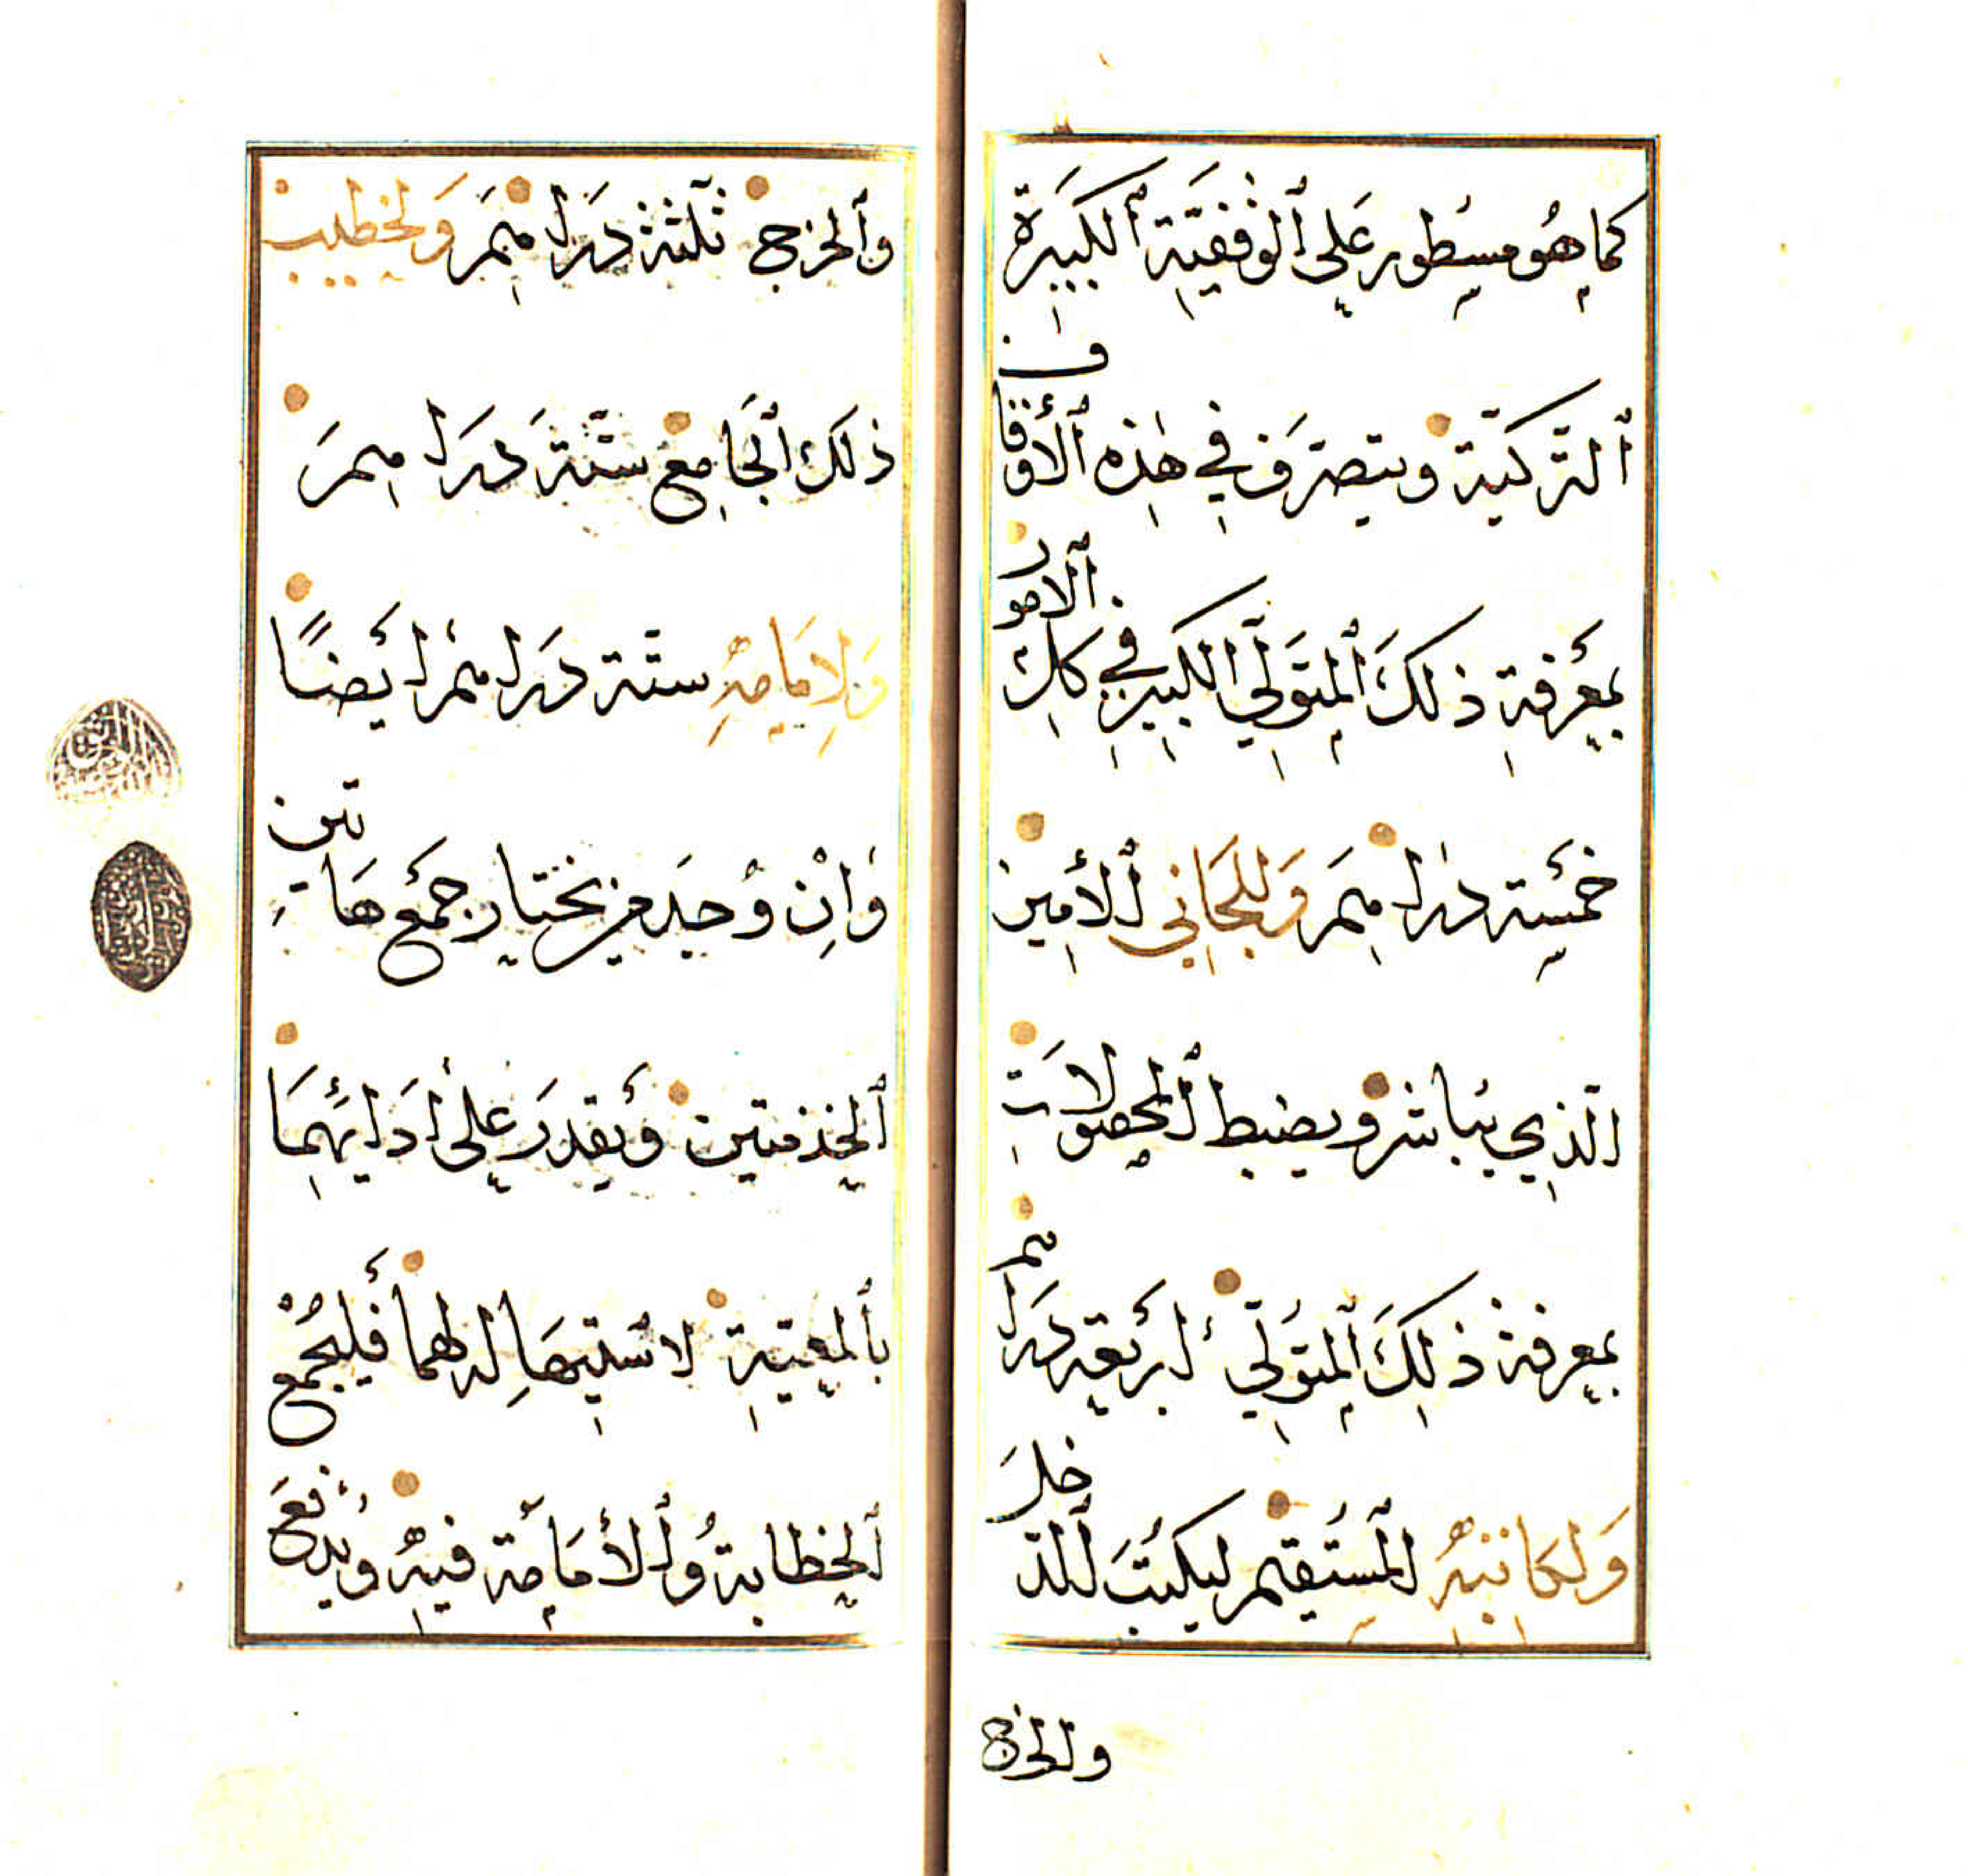 كما هُو مسطور عَلي ٱلوقفيَّةِ ٱلكَبيرَةِ
ٱلتّركيّة ويتصرَف في هٰذِه ٱلأوقاف
بمعرفةِ ذلكَ ٱلمتَولّي الكبيرِ في كلِّ ٱلامور
خمسة دراهِمَ وَللجَابي ٱلأمين
الّذِي يباشر ويضبط ٱلمحصولَاتِ
بمعرفة ذلِكَ ٱلمتَولّي أربعة دَراهم
وَلِكاتبِهِ المستقيم ليكتُبَ ٱلدّخلَ
والخرج
وٱلخرج ثلٰثة دَراهِمَ وَلخطيب
ذلك ٱلجَامِع ستّةَ دَراهِمَ
وَلإِمَامِهِ ستّة دَراهم أيضًا
وَإِنْ وُجدَ من يختار جمع هَاتَين
ٱلخدمتين وَيقدرَ عَلى أدَائِهِمَا
بٱلمعيّةِ لاسْتيهَالِه لهما فَليجمع
ٱلخطابة وُٱلأمَامَة فيهِ ويُدفَع